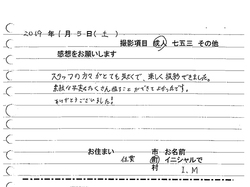 2019年1月5日(土)
撮影項目 成人 七五三 その他
感想をお願いします
スタッフの方がとても気さくで、楽しく撮影できました。
素敵な写真をたくさん撮ることができてよかったです。
ありがとうございました!
お住まい 市 お名前
佐賀 町 イニシャルで
村 I.M